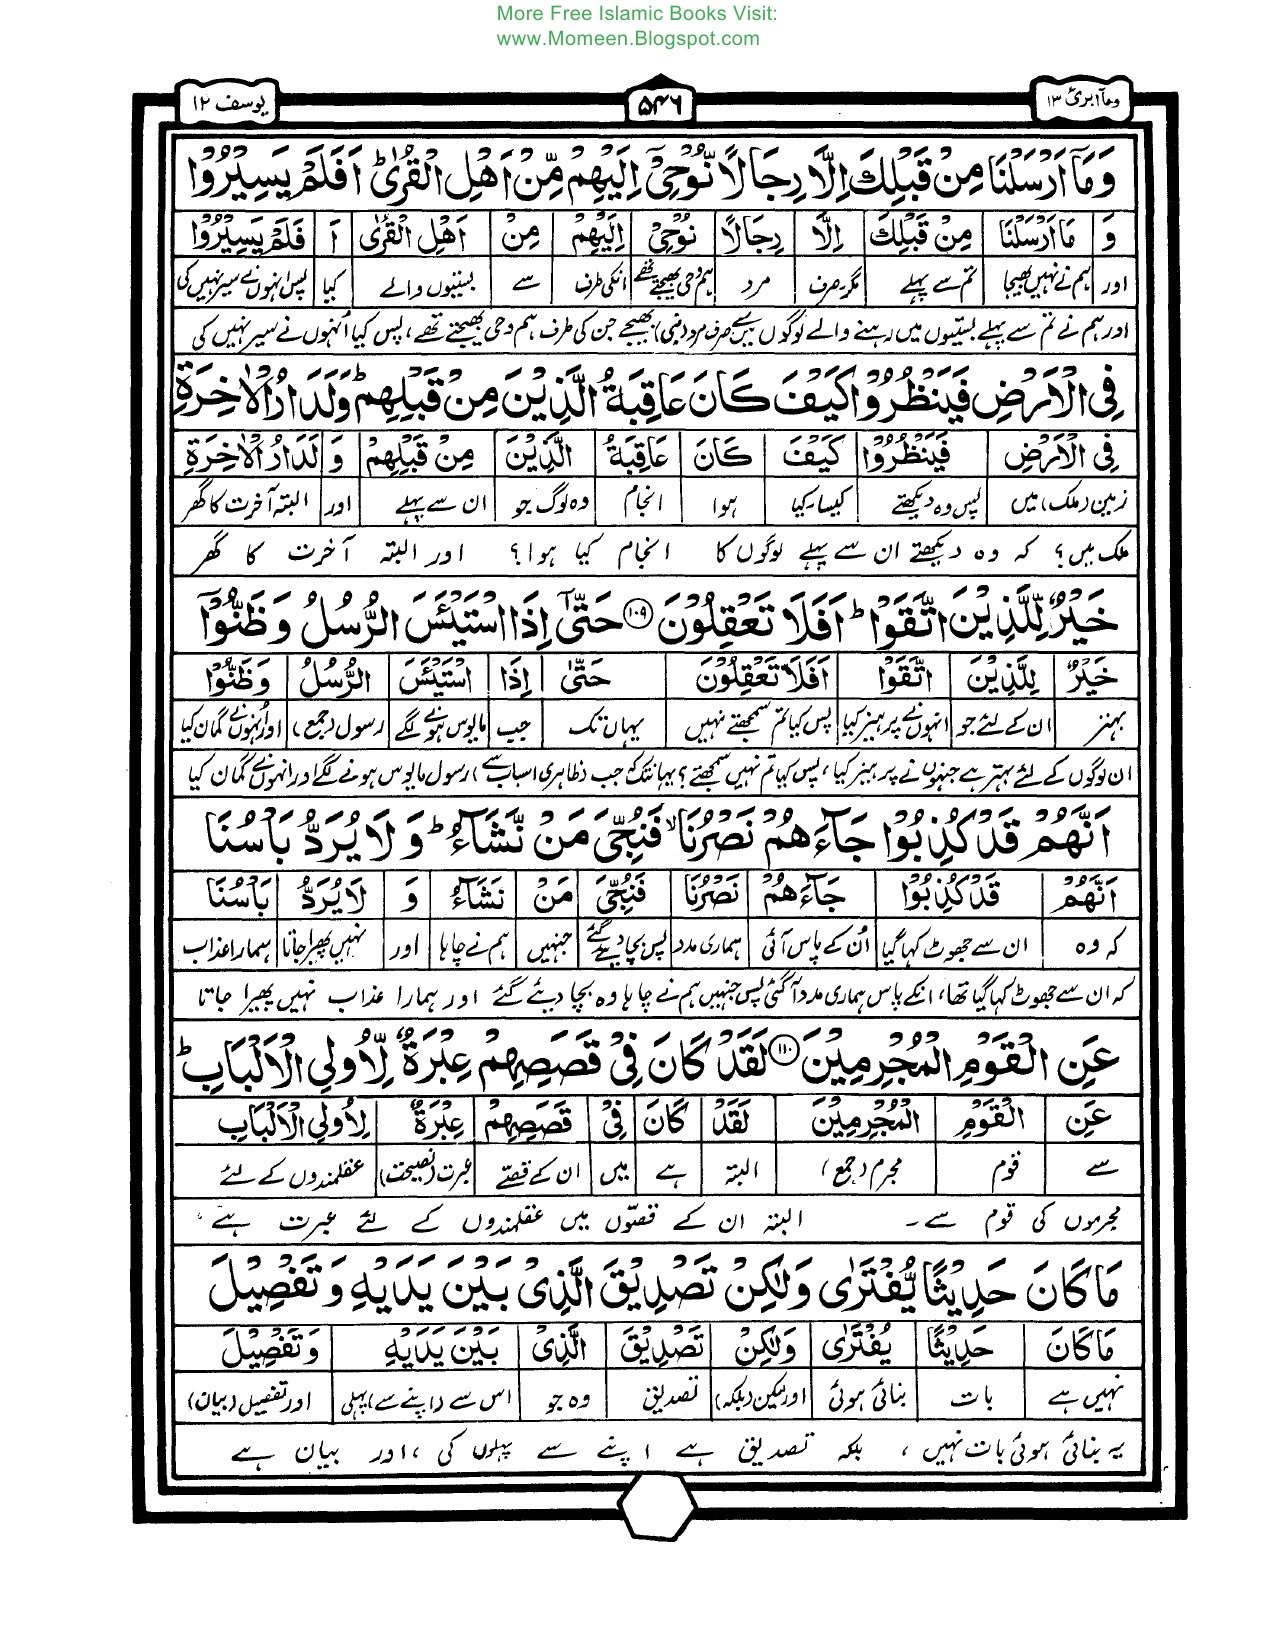 More Free Islamic Books Visit:
www.Momeen.Blogspot.com
وماۤ ابرئ ۱۳ ۵۴۶ یوسف ۱۲
وَمَاۤ اَرْسَلْنَا مِنْ قَبْلِكَ اِلَّا رِجَالًا نُّوْحِیْۤ اِلَیْهِمْ مِّنْ اَهْلِ الْقُرٰی ؕ اَفَلَمْ یَسِیْرُوْا
وَ مَاۤ اَرْسَلْنَا مِنْ قَبْلِكَ اِلَّا رِجَالًا نُوْحِیْۤ اِلَیْهِمْ مِنْ اَهْلِ الْقُرٰی اَ فَلَمْ یَسِیْرُوْا
اور ہم نے نہیں بھیجا تم سے پہلے مگر۔صرف مرد ہم وحی بھیجتے تھے انکی طرف سے بستیوں والے کیا پس انہوں نے سیر نہیں کی
اور ہم نے تم سے پہلے بستیوں میں رہنے والے لوگوں میں سے صرف مرد (نبی) بھیجے جن کی طرف ہم وحی بھیجتے تھے، پس کیا اُنہوں نے سیر نہیں کی
فِی الْاَرْضِ فَیَنْظُرُوْا كَیْفَ كَانَ عَاقِبَةُ الَّذِیْنَ مِنْ قَبْلِهِمْ ؕ وَلَدَارُ الْاٰخِرَةِ
فِی الْاَرْضِ فَیَنْظُرُوْا كَیْفَ كَانَ عَاقِبَةُ الَّذِیْنَ مِنْ قَبْلِهِمْ وَ لَدَارُ الْاٰخِرَةِ
زمین (ملک) میں پس وہ دیکھتے کیسا۔کیا ہوا انجام وہ لوگ جو ان سے پہلے اور البتہ آخرت کا گھر
ملک میں؟ کہ وہ دیکھتے ان سے پہلے لوگوں کا انجام کیا ہوا؟ اور البتہ آخرت کا گھر
خَیْرٌ لِّلَّذِیْنَ اتَّقَوْا ؕ اَفَلَا تَعْقِلُوْنَ ۱۰۹ حَتّٰۤی اِذَا اسْتَیْئَسَ الرُّسُلُ وَظَنُّوْۤا
خَیْرٌ لِلَّذِیْنَ اتَّقَوْا اَفَلَا تَعْقِلُوْنَ حَتّٰی اِذَا اسْتَیْئَسَ الرُّسُلُ وَظَنُّوْۤا
بہتر ان کے لئے جو انہوں نے پرہیز کیا پس کیا تم سمجھتے نہیں یہاں تک جب مایوس ہونے لگے رسول (جمع) اور اُنہوں نے گمان کیا
ان لوگوں کے لئے بہتر ہے جنہوں نے پرہیز کیا، پس کیا تم نہیں سمجھتے؟ یہانتک کہ جب (ظاہری اسباب سے) رسول مایوس ہونے لگے اور انہوں نے گمان کیا
اَنَّهُمْ قَدْ كُذِبُوْا جَآءَهُمْ نَصْرُنَا ۙ فَنُجِّیَ مَنْ نَّشَآءُ ؕ وَلَا یُرَدُّ بَاْسُنَا
اَنَّهُمْ قَدْ كُذِبُوْا جَآءَهُمْ نَصْرُنَا فَنُجِّیَ مَنْ نَشَآءُ وَ لَا یُرَدُّ بَاْسُنَا
کہ وہ ان سے جھوٹ کہا گیا اُن کے پاس آئی ہماری مدد پس بچا دیئے گئے جنہیں ہم نے چاہا اور نہیں پھیرا جاتا ہمارا عذاب
کہ ان سے جھوٹ کہا گیا تھا، انکے پاس ہماری مدد آگئی پس جنہیں ہم نے چاہا وہ بچا دیئے گئے اور ہمارا عذاب نہیں پھیرا جاتا
عَنِ الْقَوْمِ الْمُجْرِمِیْنَ ۱۱۰ لَقَدْ كَانَ فِیْ قَصَصِهِمْ عِبْرَةٌ لِّاُولِی الْاَلْبَابِ ؕ
عَنِ الْقَوْمِ الْمُجْرِمِیْنَ لَقَدْ كَانَ فِیْ قَصَصِهِمْ عِبْرَةٌ لِاُولِی الْاَلْبَابِ
سے قوم مجرم (جمع) البتہ ہے میں ان کے قصّے عبرت (نصیحت) عقلمندوں کے لئے
مجرموں کی قوم سے۔ البتہ ان کے قصّوں میں عقلمندوں کے لئے عبرت ہے،
مَا كَانَ حَدِیْثًا یُّفْتَرٰی وَلٰكِنْ تَصْدِیْقَ الَّذِیْ بَیْنَ یَدَیْهِ وَتَفْصِیْلَ
مَا كَانَ حَدِیْثًا یُفْتَرٰی وَلٰكِنْ تَصْدِیْقَ الَّذِیْ بَیْنَ یَدَیْهِ وَتَفْصِیْلَ
نہیں ہے بات بنائی ہوئی اور لیکن (بلکہ) تصدیق وہ جو اس سے (اپنے سے) پہلی اور تفصیل (بیان)
یہ بنائی ہوئی بات نہیں، بلکہ تصدیق ہے اپنے سے پہلوں کی، اور بیان ہے